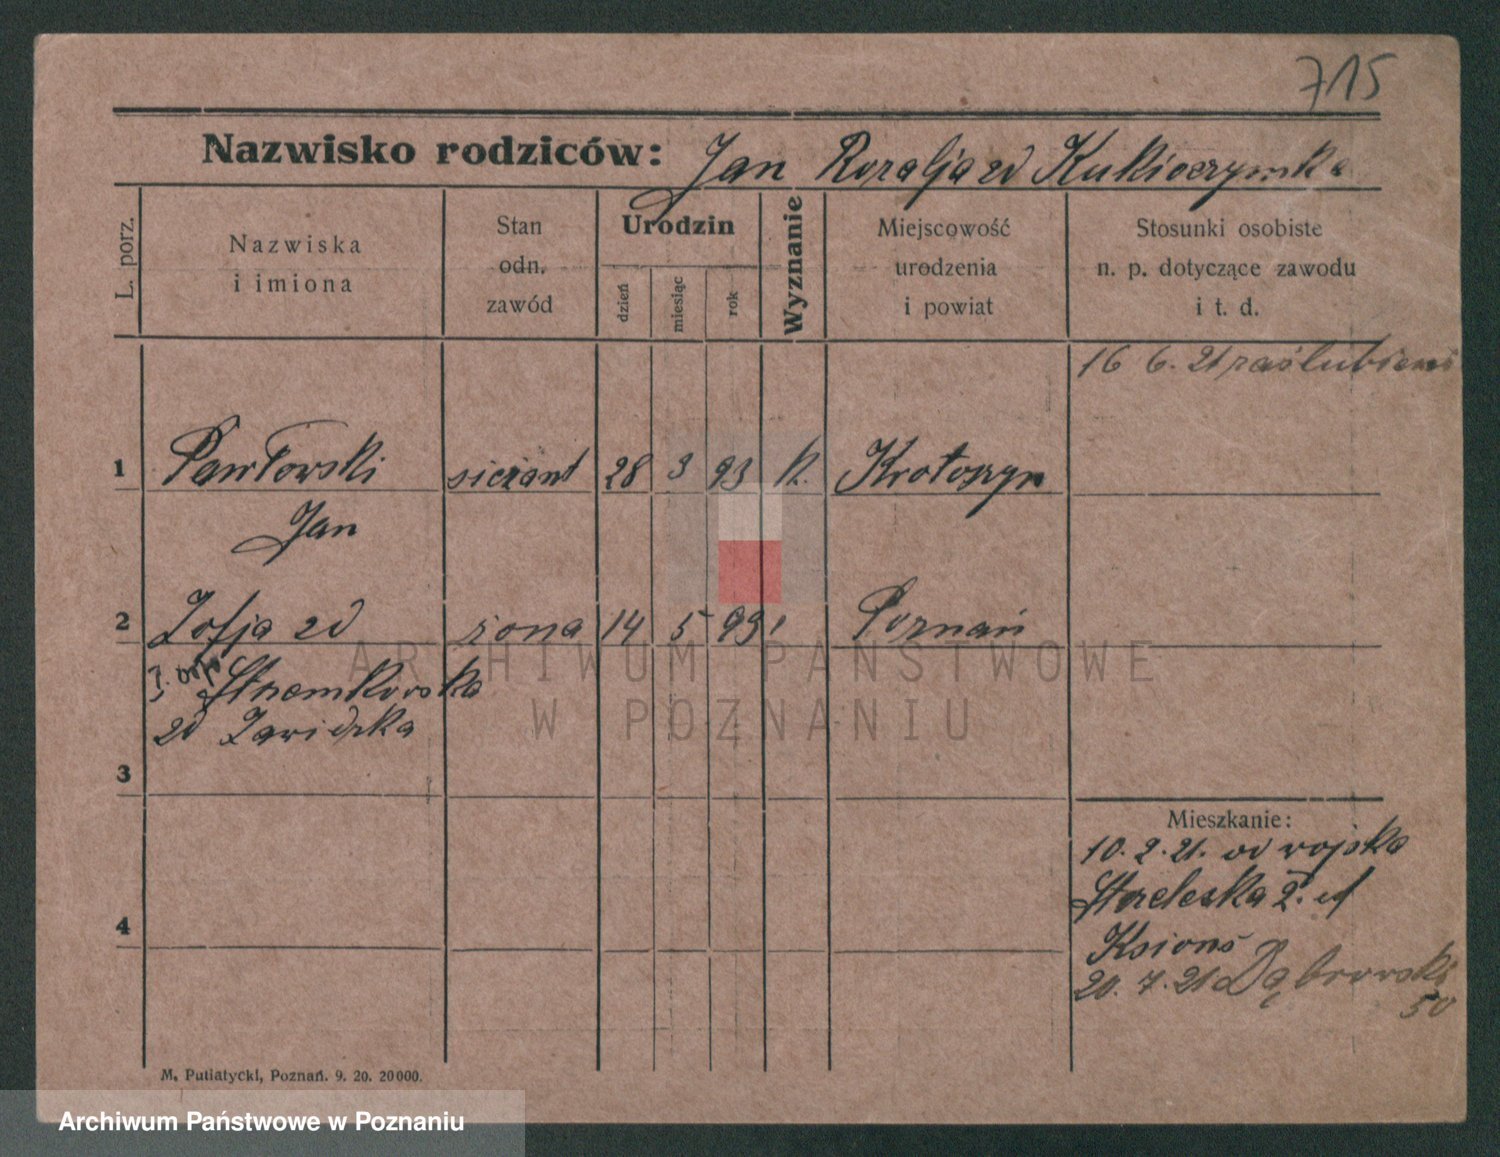 715
Nazwisko rodziców: Jan Rozalja zd Kukioczymka
L. porz.
Nazwiska i imiona
Stan odn. zawód
Urodzin
dzień
miesiąc
rok
Wyznanie
Miejscowość urodzenia i powiat
Stosunki osobiste n. p. dotyczące zawodu i t. d.
16 6. 21 zaślubieni
1 Pawłowski sierżant 28 3 93 k. Krotoszyn
Jan
2 Zofja zd żona 14 5 99 Poznań
Strzemkowska
zd Zawidzka
3
Mieszkanie:
10. 2. 21. od wojska
Strzelecka 2.
4
Ksionś
20. 7. 21 Dąbrowski
50
M. Putiatycki, Poznań. 9. 20. 20000.
ARCHIWUM PAŃSTWOWE
W POZNANIU
Archiwum Państwowe w Poznaniu